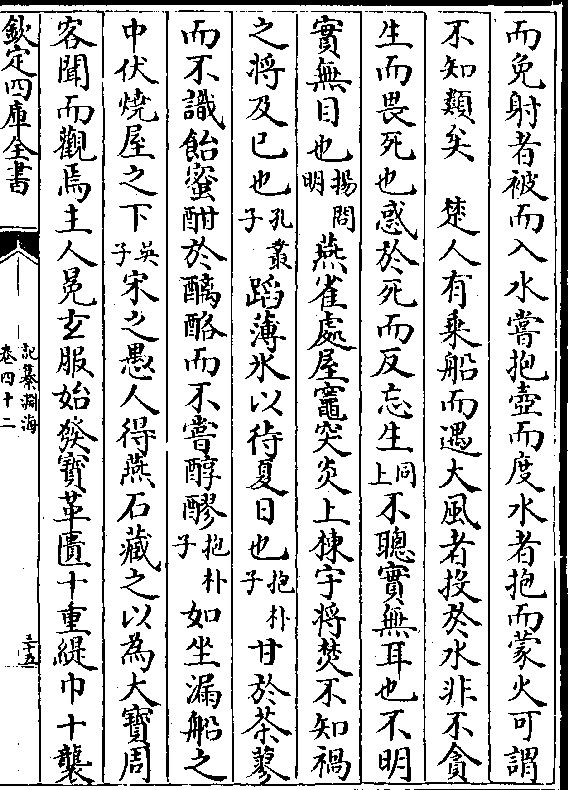 而免射者被而入水嘗抱壺而度水者抱而蒙火可謂
不知類矣　楚人有乘船而遇大風者投於水非不貪
生而畏死也惑於死而反忘生同上不聰實無耳也不明
實無目也揚問明燕雀處屋竈突炎上棟宇將焚不知禍
之將及已也孔叢子蹈薄氷以待夏日也抱朴子甘於荼蓼
而不識飴蜜酣於醨酪而不嘗醇醪抱朴子如坐漏船之
中伏燒屋之下英子宋之愚人得燕石藏之以為大寶周
客聞而觀焉主人冕玄服始發寳革匱十重緹巾十襲
欽定四庫全書
記纂淵海
卷四十二
三十五